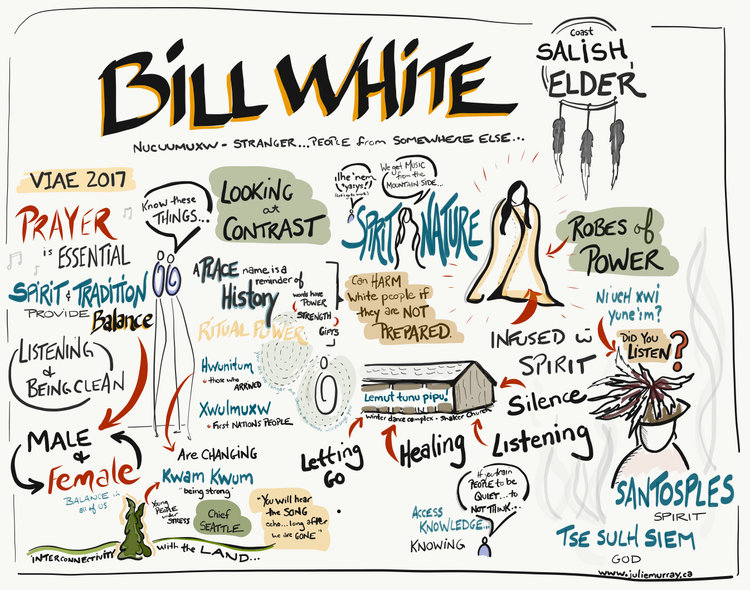 BILL WHITE
Coast
SALISH
ELDER
NUCUUMUXW - STRANGER...PEOPLE from SOMEWHERE ELSE...
VIAE 2017
PRAYER
is ESSENTIAL
SPIRIT & TRADITION
PROVIDE
Balance
LISTENING
& BEING CLEAN
MALE
&
Female
BALANCE in
all of us
KNOW these
THINGS...
LOOKING
at
CONTRAST
A PLACE name is a
reminder of
History
words have POWER
STRENGTH
GIFTS
RITUAL POWER
Hwunitum
those who ARRIVED
Xwulmuxw
First NATIONS PEOPLE
Are CHANGING
Kwam Kwum
"being strong"
Young
PEOPLE
under
STRESS
Chief
SEATTLE
"You will hear
the SONG
echo...long after
we are GONE"
INTERCONNECTIVITY with the LAND...
We get MUSIC
from the
MOUNTAIN SIDE...
SPIRIT NATURE
Can HARM
white people if
they are NOT
PREPARED.
ROBES of
POWER
INFUSED w
SPIRIT
Niuch xwi
yune'im?
DID YOU
LISTEN?
Lemut tunu pipu!
Winter dance complex - Shaker Church
Letting
GO
Healing
Listening
Silence
If you train
PEOPLE to be
QUIET...to
NOT THINK...
ACCESS
KNOWLEDGE...
KNOWING
SANTOSPLES
SPIRIT
TSE SULH SIEM
GOD
www.juliemurray.ca